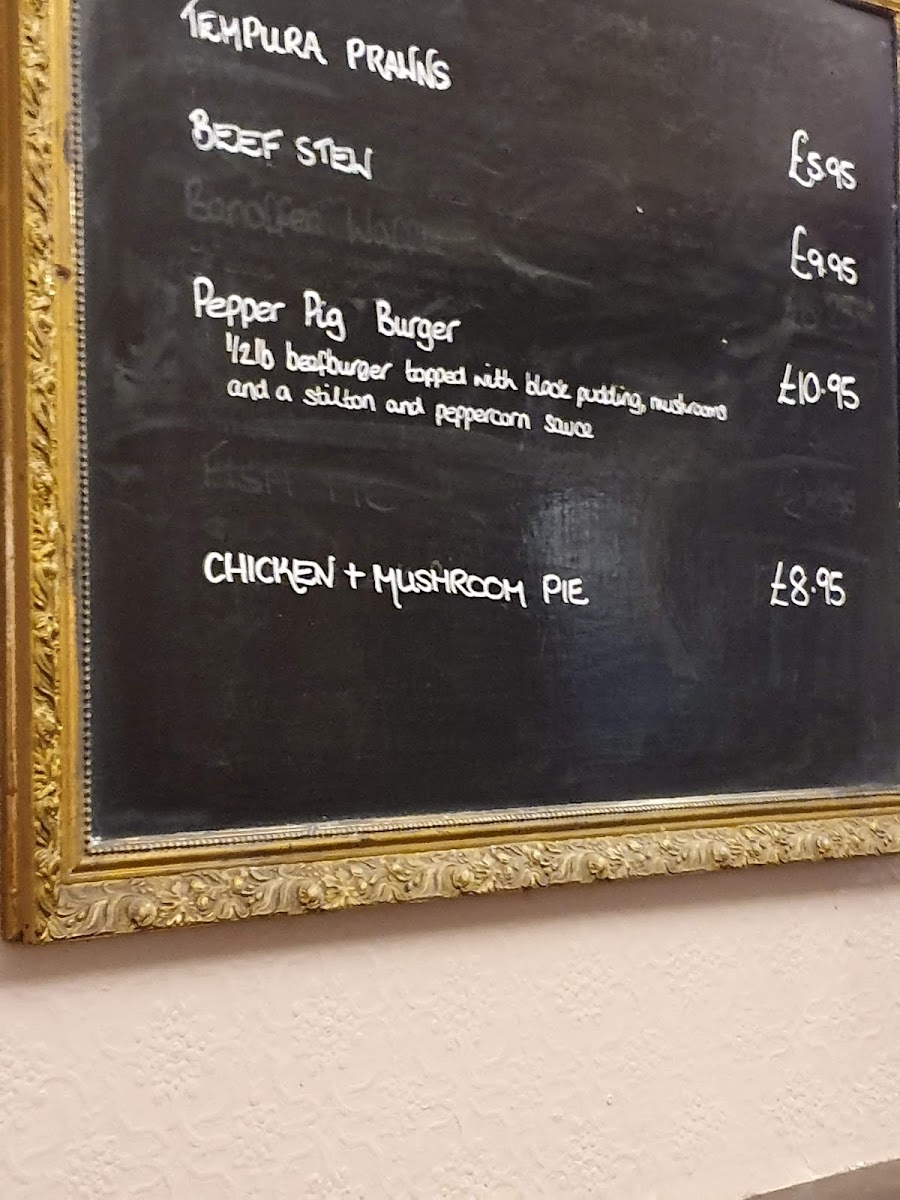 TEMPURA PRAWNS £5.95
BEEF STEW £9.95
Pepper Pig Burger £10.95
1/2lb beefburger topped with black pudding, mushrooms
and a stilton and peppercorn sauce
CHICKEN + MUSHROOM PIE £8.95